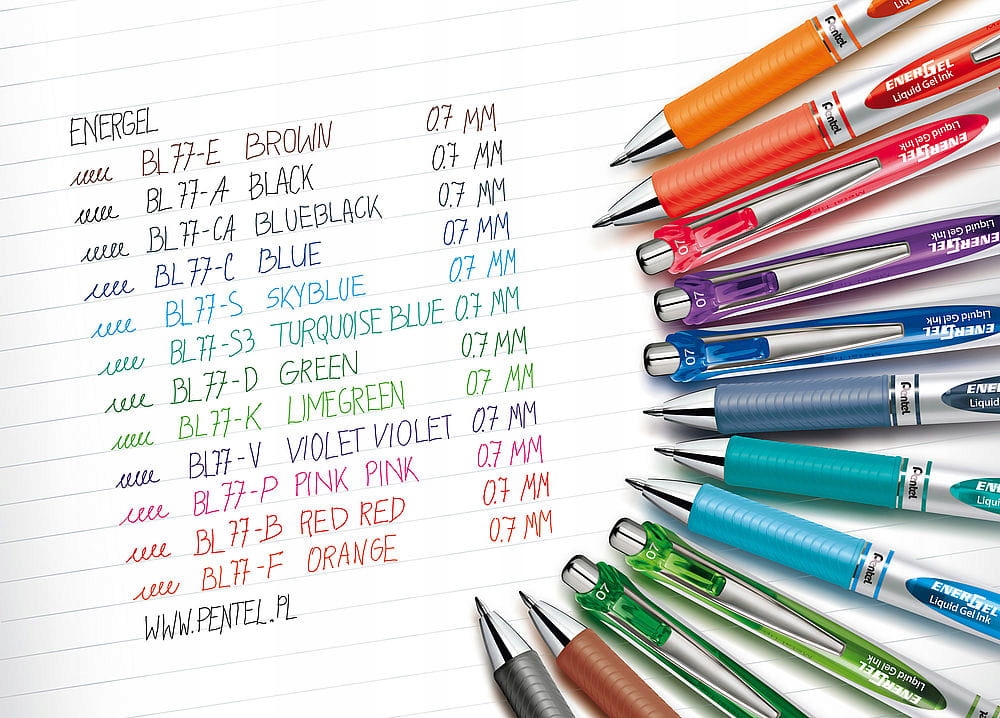 ENERGEL
BL77-E BROWN 0.7 MM
BL77-A BLACK 0.7 MM
BL77-CA BLUEBLACK 0.7 MM
BL77-C BLUE 0.7 MM
BL77-S SKYBLUE 0.7 MM
BL77-S3 TURQUOISE BLUE 0.7 MM
BL77-D GREEN 0.7 MM
BL77-K LIMEGREEN 0.7 MM
BL77-V VIOLET VIOLET 0.7 MM
BL77-P PINK PINK 0.7 MM
BL77-B RED RED 0.7 MM
BL77-F ORANGE 0.7 MM
WWW.PENTEL.PL
Pentel
Pentel
ENERGEL
Liquid Gel Ink
07
ENERGEL
Liquid Gel Ink
07
ENERGEL
Liquid Gel Ink
07
ENERGEL
Liquid Gel Ink
Pentel
ENE
Liquid
Pentel
EN
Liqui
Pentel
ENERGEL
Liquid Gel Ink
07
ENERGEL
Liquid Gel Ink
07